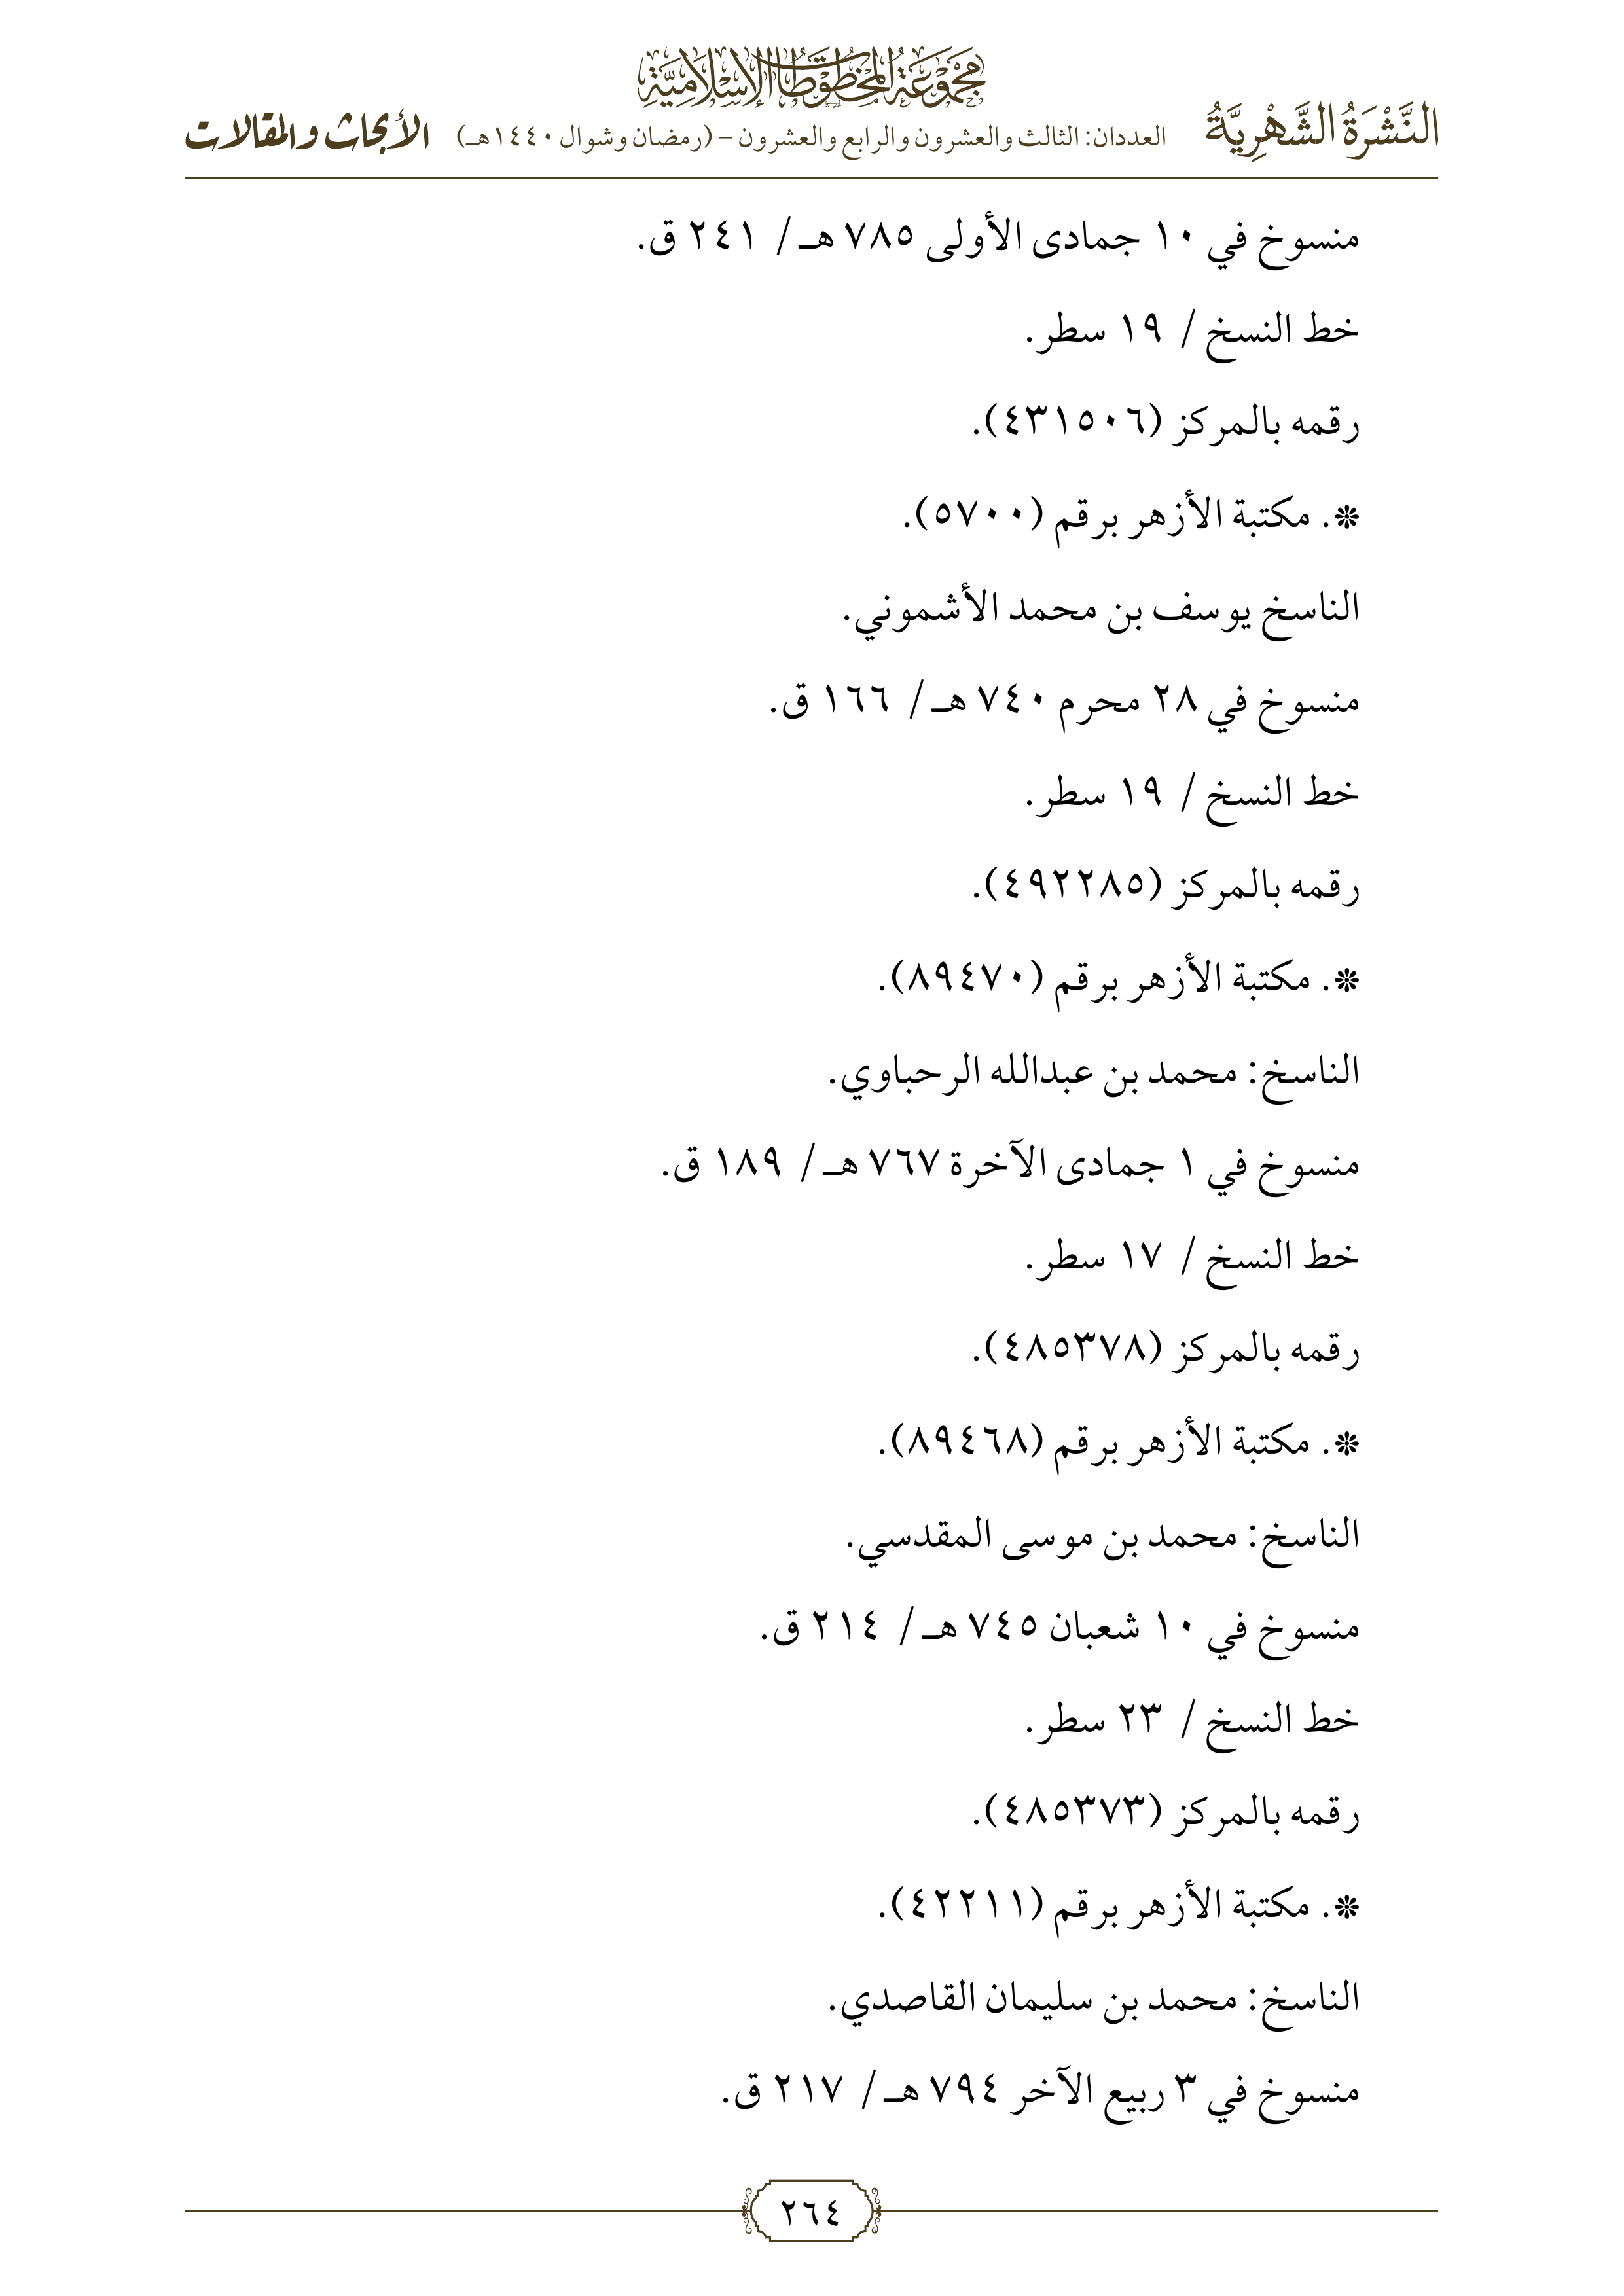 مجموعة المخطوطات الإسلامية
النَّشْرَةُ الشَّهْرِيَّةُ العددان: الثالث والعشرون والرابع والعشرون – (رمضان وشوال ١٤٤٠هـ) الأبحاث والمقالات
منسوخ في ١٠ جمادى الأولى ٧٨٥ هـ / ٢٤١ ق.
خط النسخ / ١٩ سطر.
رقمه بالمركز (٤٣١٥٠٦).
❊. مكتبة الأزهر برقم (٥٧٠٠).
الناسخ يوسف بن محمد الأشموني.
منسوخ في ٢٨ محرم ٧٤٠ هـ / ١٦٦ ق.
خط النسخ / ١٩ سطر.
رقمه بالمركز (٤٩٢٢٨٥).
❊. مكتبة الأزهر برقم (٨٩٤٧٠).
الناسخ: محمد بن عبدالله الرحباوي.
منسوخ في ١ جمادى الآخرة ٧٦٧ هـ / ١٨٩ ق.
خط النسخ / ١٧ سطر.
رقمه بالمركز (٤٨٥٣٧٨).
❊. مكتبة الأزهر برقم (٨٩٤٦٨).
الناسخ: محمد بن موسى المقدسي.
منسوخ في ١٠ شعبان ٧٤٥ هـ / ٢١٤ ق.
خط النسخ / ٢٣ سطر.
رقمه بالمركز (٤٨٥٣٧٣).
❊. مكتبة الأزهر برقم (٤٢٢١١).
الناسخ: محمد بن سليمان القاصدي.
منسوخ في ٣ ربيع الآخر ٧٩٤ هـ / ٢١٧ ق.
٢٦٤